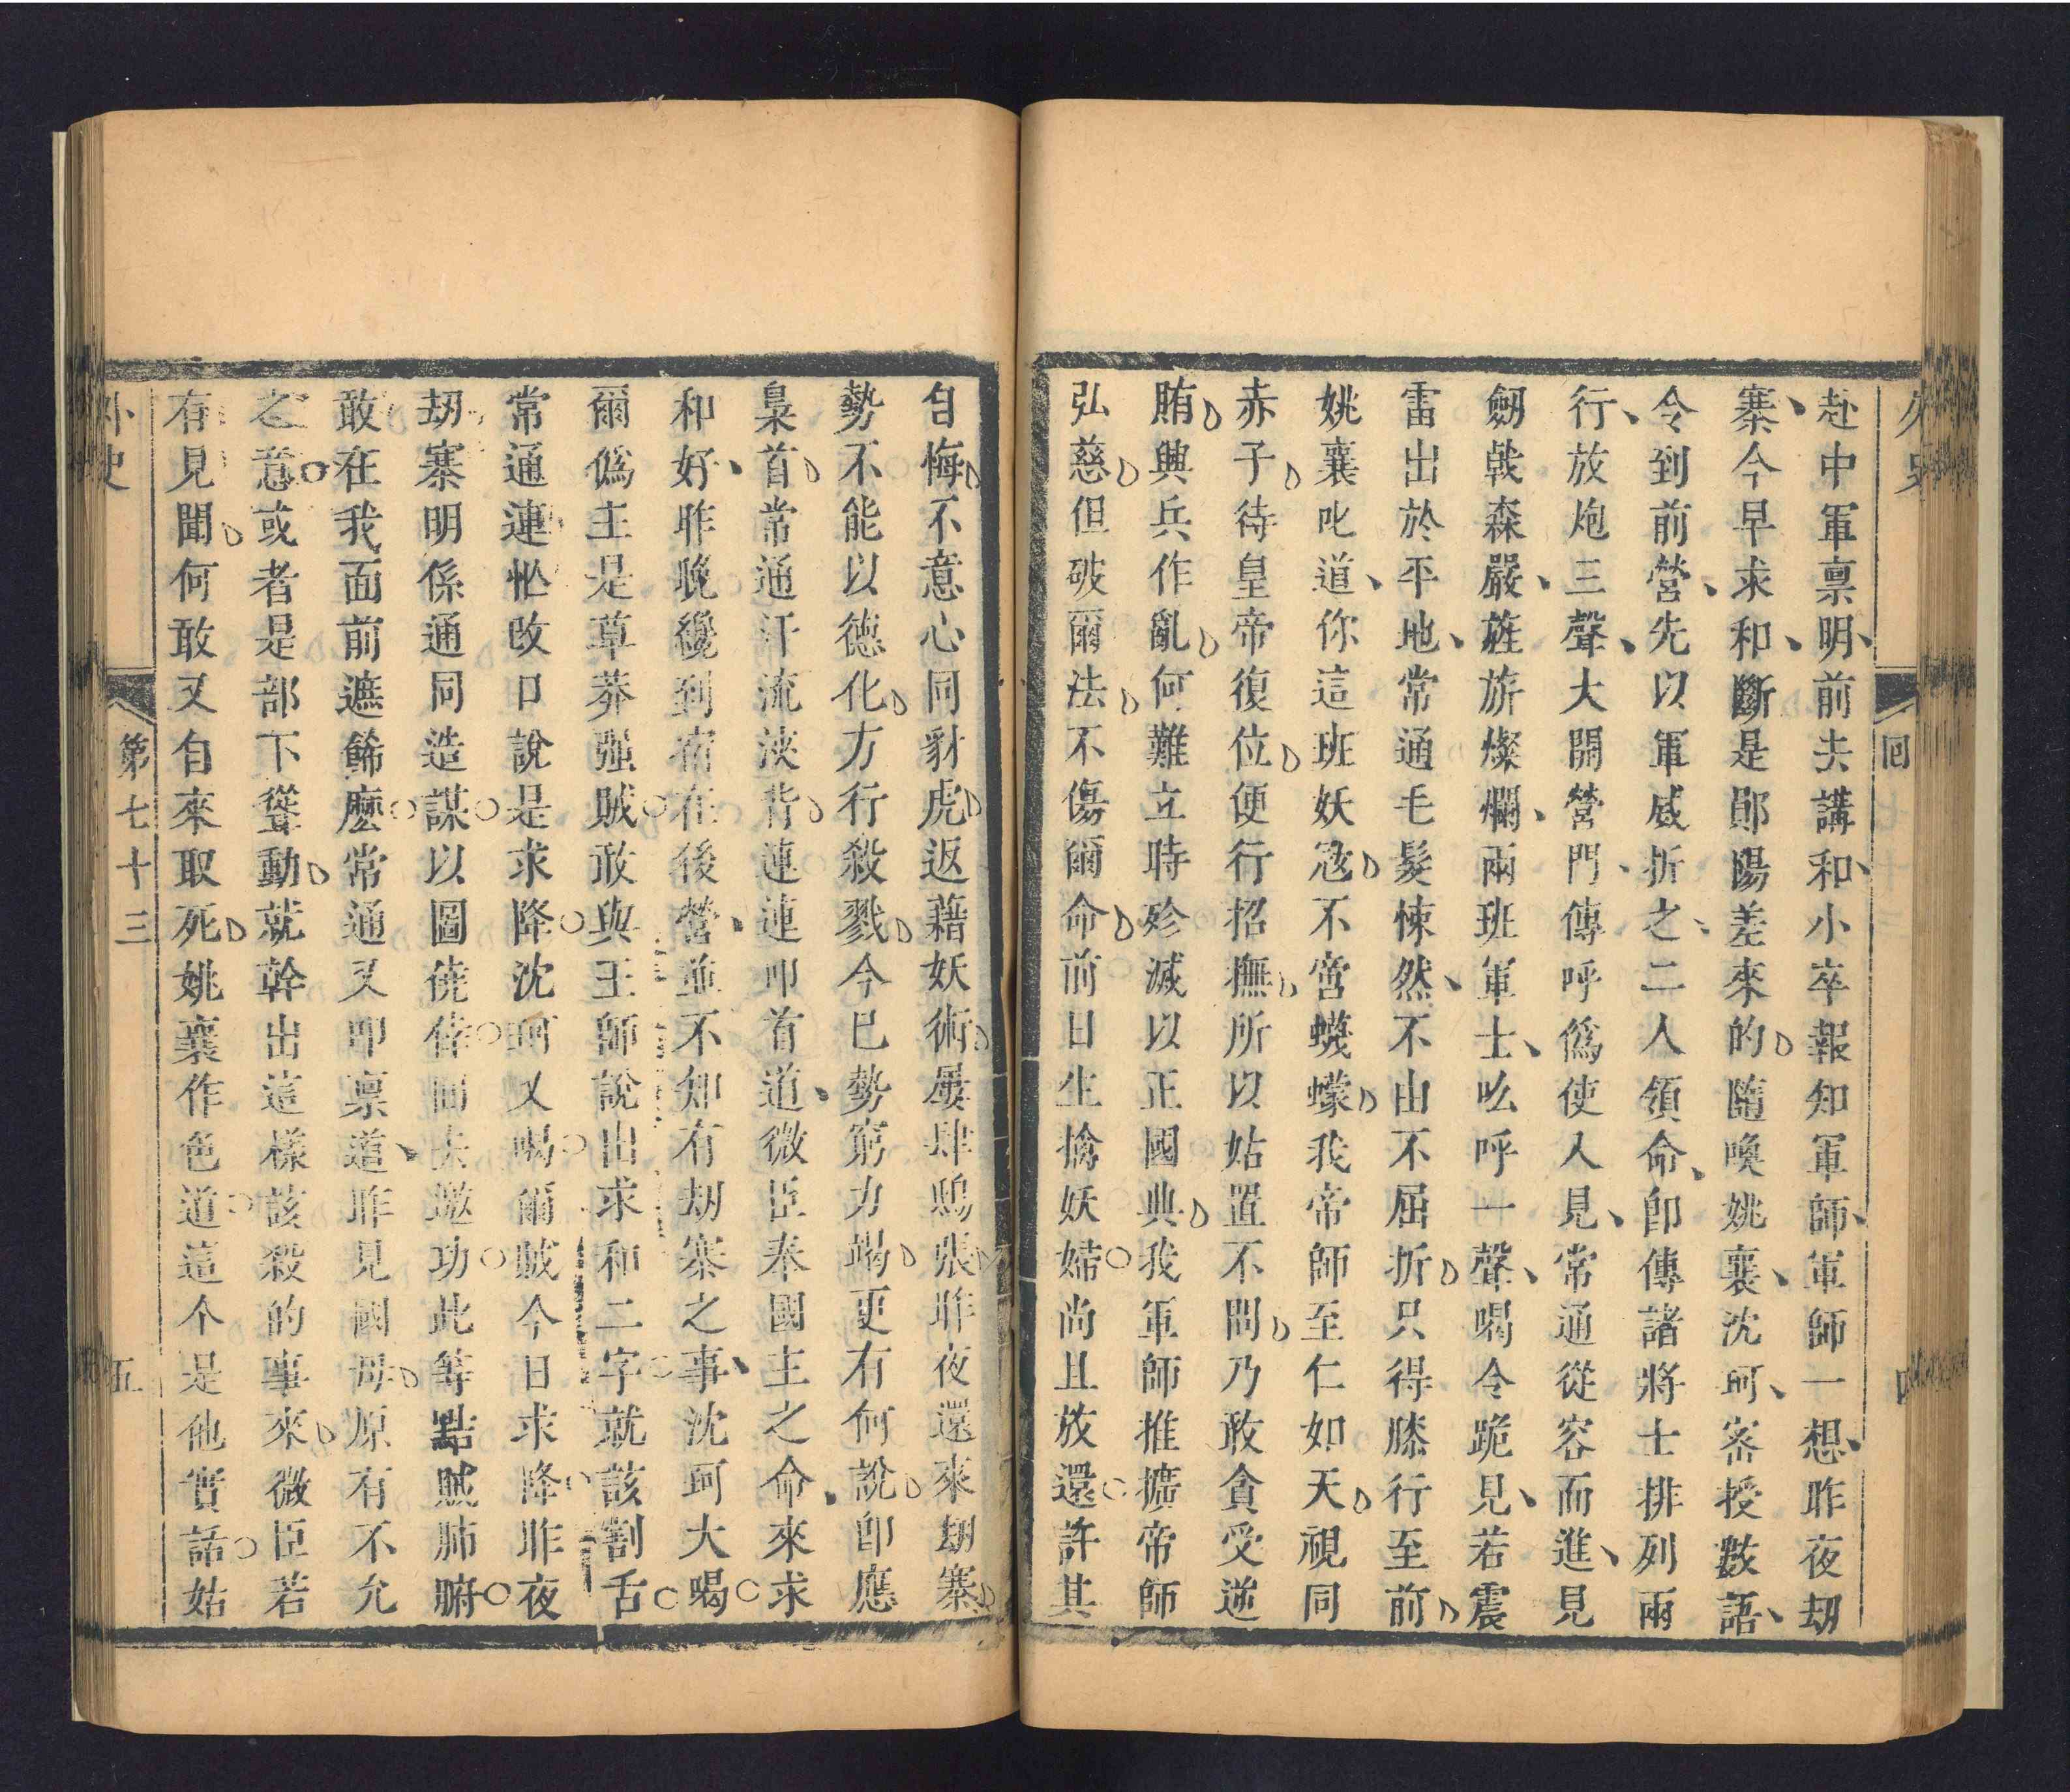 外史
回
四
赴中軍禀明前去講和小卒報知軍師軍師一想昨夜刼
寨今早求和斷是鄖陽差來的隨喚姚襄沈珂密授數語
令到前營先以軍威折之二人領命卽傳諸將士排列兩
行放炮三聲大開營門傳呼僞使入見常通從容而進見
劒戟森嚴旌旂燦爛兩班軍士吆呼一聲喝令跪見若震
雷出於平地常通毛髮悚然不由不屈折只得膝行至前
姚襄叱道你這班妖冦不啻蟣蠓我帝師至仁如天視同
赤子待皇帝復位便行招撫所以姑置不問乃敢貪受逆
賄興兵作亂何難立時殄滅以正國典我軍師推擴帝師
弘慈但破爾法不傷爾命前日生擒妖婦尚且放還許其
自悔不意心同豺虎返藉妖術屢肆鴟張昨夜還來刼寨
勢不能以德化方行殺戮今巳勢窮力竭更有何說卽應
梟首常通汗流浹背連連叩首道微臣奉國主之命來求
和好昨晚纔到宿在後營並不知有刼寨之事沈珂大喝
爾僞主是草莽强賊敢與王師說出求和二字就該割舌
常通連忙改口說是求降沈珂又喝爾賊今日求降昨夜
刼寨明係通同造謀以圖僥倖回去邀功此等點賊肺腑
敢在我面前遮餙麽常通又叩禀道昨見國母原有不允
之意或者是部下聳動就幹出這樣該殺的事來微臣若
存見聞何敢又自來取死姚襄作色道這个是他實話姑
外史
第七十三
五